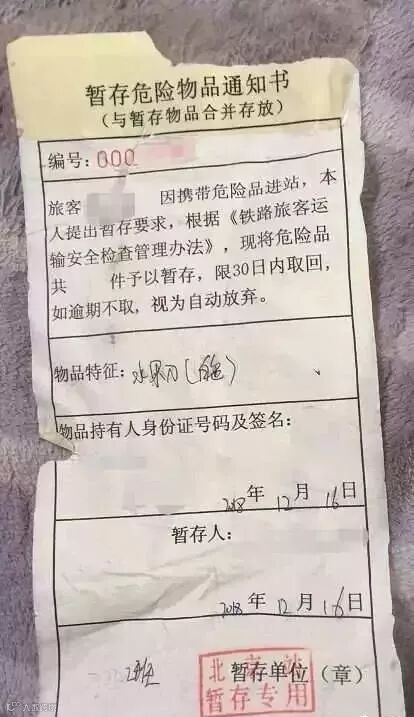 暂存危险物品通知书
（与暂存物品合并存放）
编号：000
旅客 因携带危险品进站，本
人提出暂存要求，根据《铁路旅客运
输安全检查管理办法》，现将危险品
共 件予以暂存，限30日内取回，
如逾期不取，视为自动放弃。
物品特征：水果刀（白色）
物品持有人身份证号码及签名：
2018年12月16日
暂存人：
2018年12月16日
暂存单位（章）
暂存专用